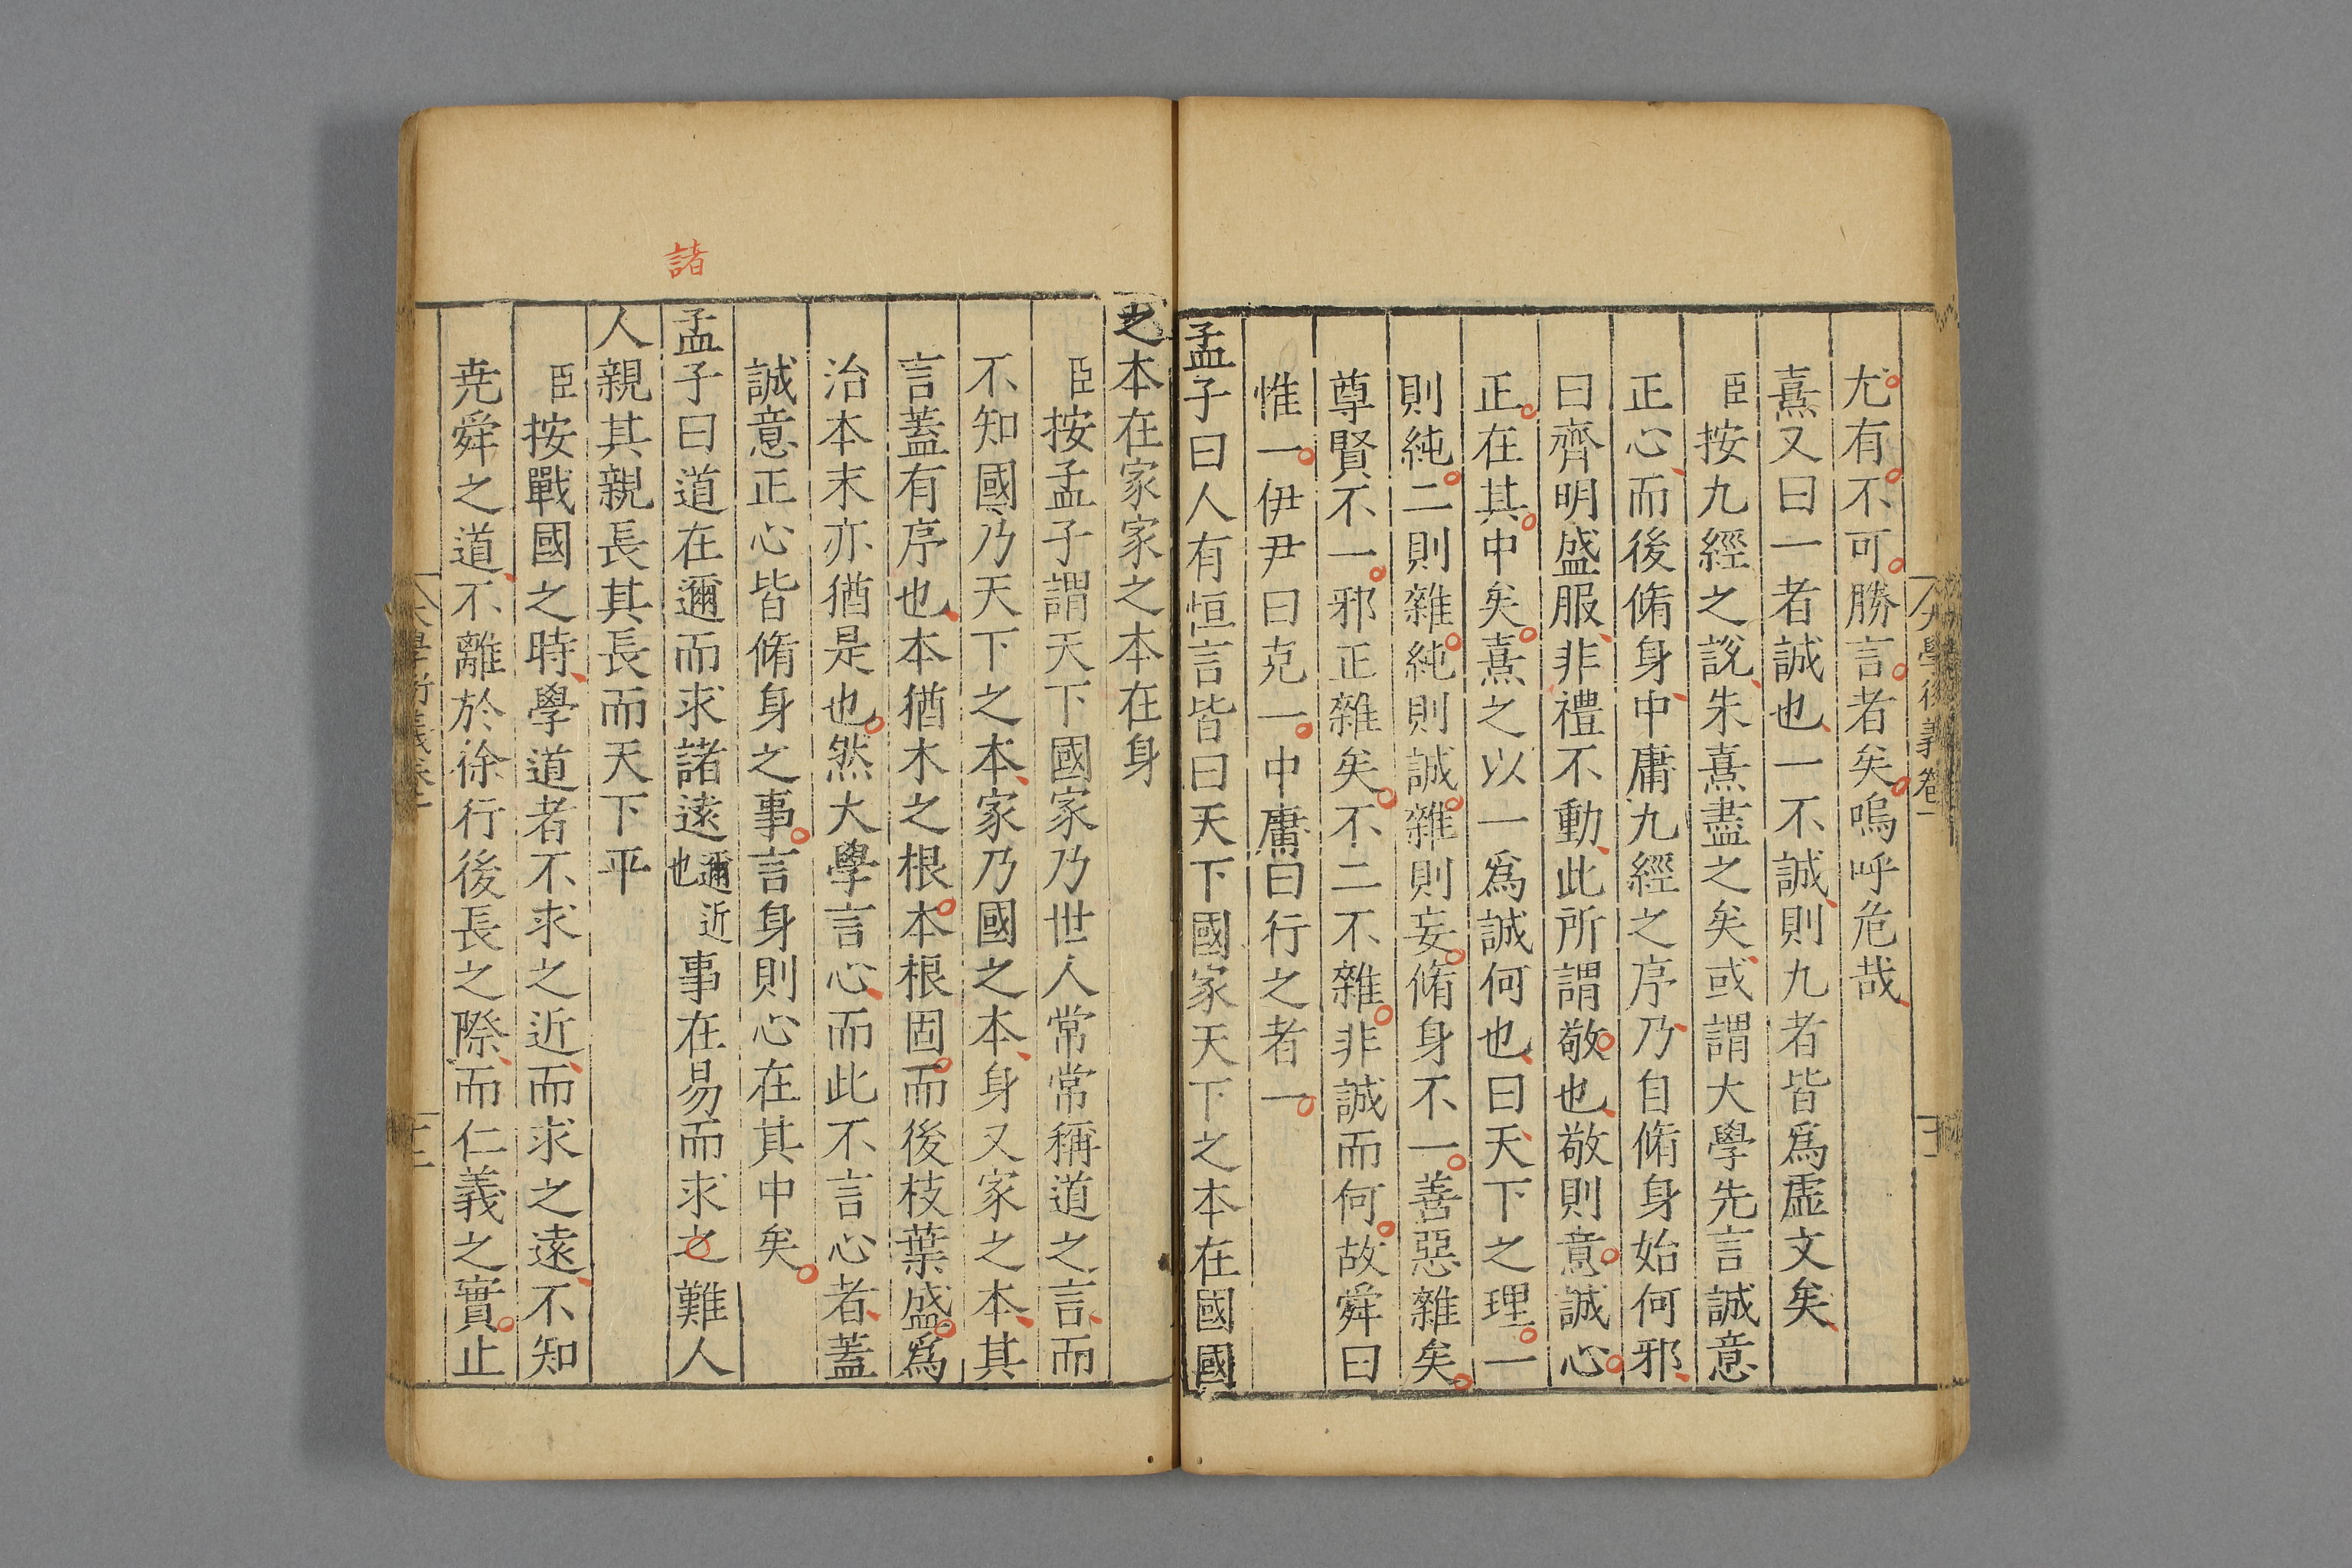 尤有不可勝言者矣嗚呼危哉
熹又曰一者誠也一不誠則九者皆爲虛文矣
臣按九經之說朱熹盡之矣或謂大學先言誠意
正心而後脩身中庸九經之序乃自脩身始何邪
曰齊明盛服非禮不動此所謂敬也敬則意誠心
正在其中矣熹之以一爲誠何也曰天下之理一
則純二則雜純則誠雜則妄脩身不一善惡雜矣
尊賢不一邪正雜矣不二不雜非誠而何故舜曰
惟一伊尹曰克一中庸曰行之者一
孟子曰人有恒言皆曰天下國家天下之本在國國
之本在家家之本在身
臣按孟子謂天下國家乃世人常常稱道之言而
不知國乃天下之本家乃國之本身又家之本其
言蓋有序也本猶木之根本根固而後枝葉盛爲
治本末亦猶是也然大學言心而此不言心者蓋
誠意正心皆脩身之事言身則心在其中矣
諸
孟子曰道在邇而求諸遠邇近也事在易而求之難人
人親其親長其長而天下平
臣按戰國之時學道者不求之近而求之遠不知
堯舜之道不離於徐行後長之際而仁義之實止